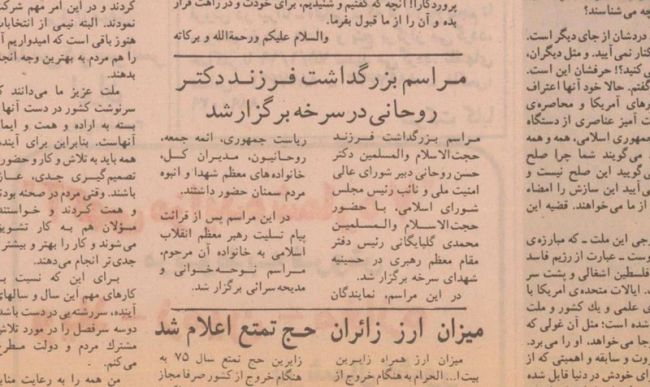 پروردگارا! آنچه که گفتیم و شنیدیم، برای خودت و در راهت قرار
بده و آن را از ما قبول بفرما.
والسلام علیکم ورحمةالله و برکاته
مراسم بزرگداشت فرزند دکتر
روحانی در سرخه برگزار شد
مراسم بزرگداشت فرزند
حجت‌الاسلام والمسلمین دکتر
حسن روحانی دبیر شورای عالی
امنیت ملی و نائب رئیس مجلس
شورای اسلامی، با حضور
حجت‌الاسلام والمسلمین
محمدی گلپایگانی رئیس دفتر
مقام معظم رهبری در حسینیه
شهدای سرخه برگزار شد.
در این مراسم، نمایندگان
ریاست جمهوری، ائمه جمعه،
روحانیون، مدیران کل،
خانواده‌های معظم شهدا و انبوه
مردم سمنان حضور داشتند.
در این مراسم پس از قرائت
پیام تسلیت رهبر معظم انقلاب
اسلامی به خانواده آن مرحوم،
مراسم نوحه‌خوانی و
مدیحه‌سرائی برگزار شد.
میزان ارز زائران حج تمتع اعلام شد
میزان ارز همراه زایرین
بیت‌ا... الحرام به هنگام خروج از
زایرین حج تمتع سال ۷۵ به
هنگام خروج از کشور صرفا مجاز
چه می‌شناسند؟
دردشان از جای دیگر است.
کنار نمی‌آیید. و مثل دیگران،
کنید؟! حرفشان این است.
گفتم. حالا خود آنها اعتراف
رهای آمریکا و محاصره‌ی
ت آمیز عناصری از دستگاه
جمهوری اسلامی، همه و همه
می‌گویند شما چرا صلح
گویید این صلح نیست و
آیید این سازش را امضاء
از ما می‌خواهند. قضیه این
وجی این ملت ـ که مبارزه‌ی
وست ـ عبارت از رژیم فاسد
فلسطین اشغالی و پشت سر
ایالات متحده‌ی آمریکا با
ی علمی و یك کشور و ملت
شده است؛ مثل آن غولی که
جا می‌خواهد، او را می‌برد.
روت و سابقه و اهمیتی که از
رای خودش در دنیا قابل شده
کردند و در این امر مهم شرکت
نمودند. البته نیمی از انتخابات
هنوز باقی است که امیدواریم آن
را هم مردم به بهترین وجه انجام
بدهند.
ملت عزیز ما می‌دانند که
سرنوشت کشور در دست آنها و
بسته به اراده و همت و ایمان
آنهاست. بنابراین برای آینده
همه باید به تلاش و کار و حضور و
تصمیم‌گیری جدی،
باشند. وقتی مردم در صحنه بودند
و همت کردند و خواستند،
مسؤلان هم به کار تشویق
می‌شوند و کار را بهتر و بیشتر و
جدی‌تر انجام می‌دهند.
برای این که نسبت به
کارهای مهم این سال و سالهای
آینده، سررشته‌یی در دست باشد،
دو سه سرفصل را در مورد تلاش
مشترك مردم و دولت مطرح
می‌کنم.
من همه را به رعایت